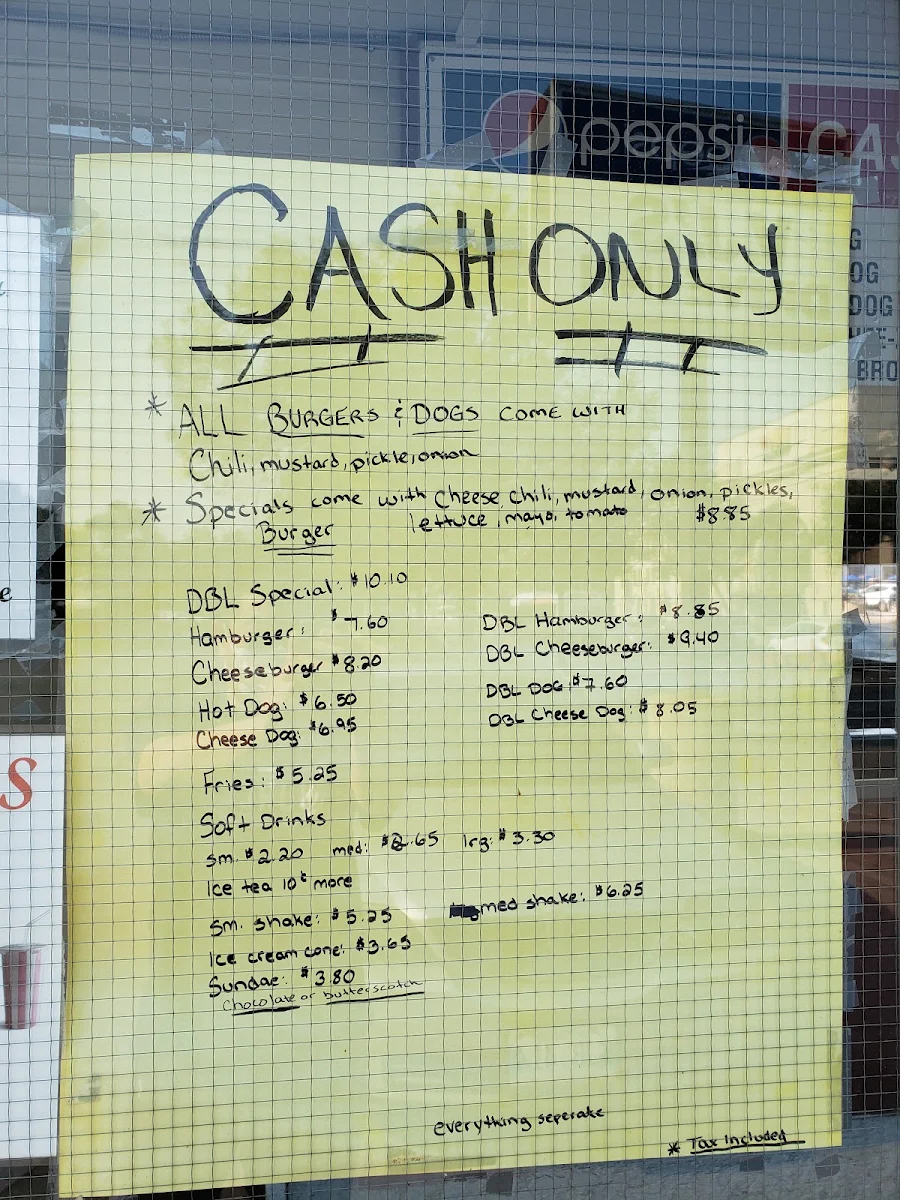 pepsi
CAS
G
OG
DOG
BRO
CASH ONLY
* ALL BURGERS & DOGS COME WITH
Chili, mustard, pickle, onion
* Specials come with Cheese, chili, mustard, onion, pickles,
Burger lettuce, mayo, tomato $8.85
DBL Special: $10.10
Hamburger: $7.60 DBL Hamburger: $8.85
Cheeseburger $8.20 DBL Cheeseburger: $9.40
Hot Dog: $6.50 DBL DOG: $7.60
Cheese Dog: $6.95 DBL Cheese Dog: $8.05
Fries: $5.25
Soft Drinks
sm. $2.20 med: $2.65 lrg: $3.30
Ice tea 10¢ more
sm. shake: $5.25 med shake: $6.25
Ice cream cone: $3.65
Sundae: $3.80
Chocolate or butterscotch
everything seperate
* Tax Included
e
S